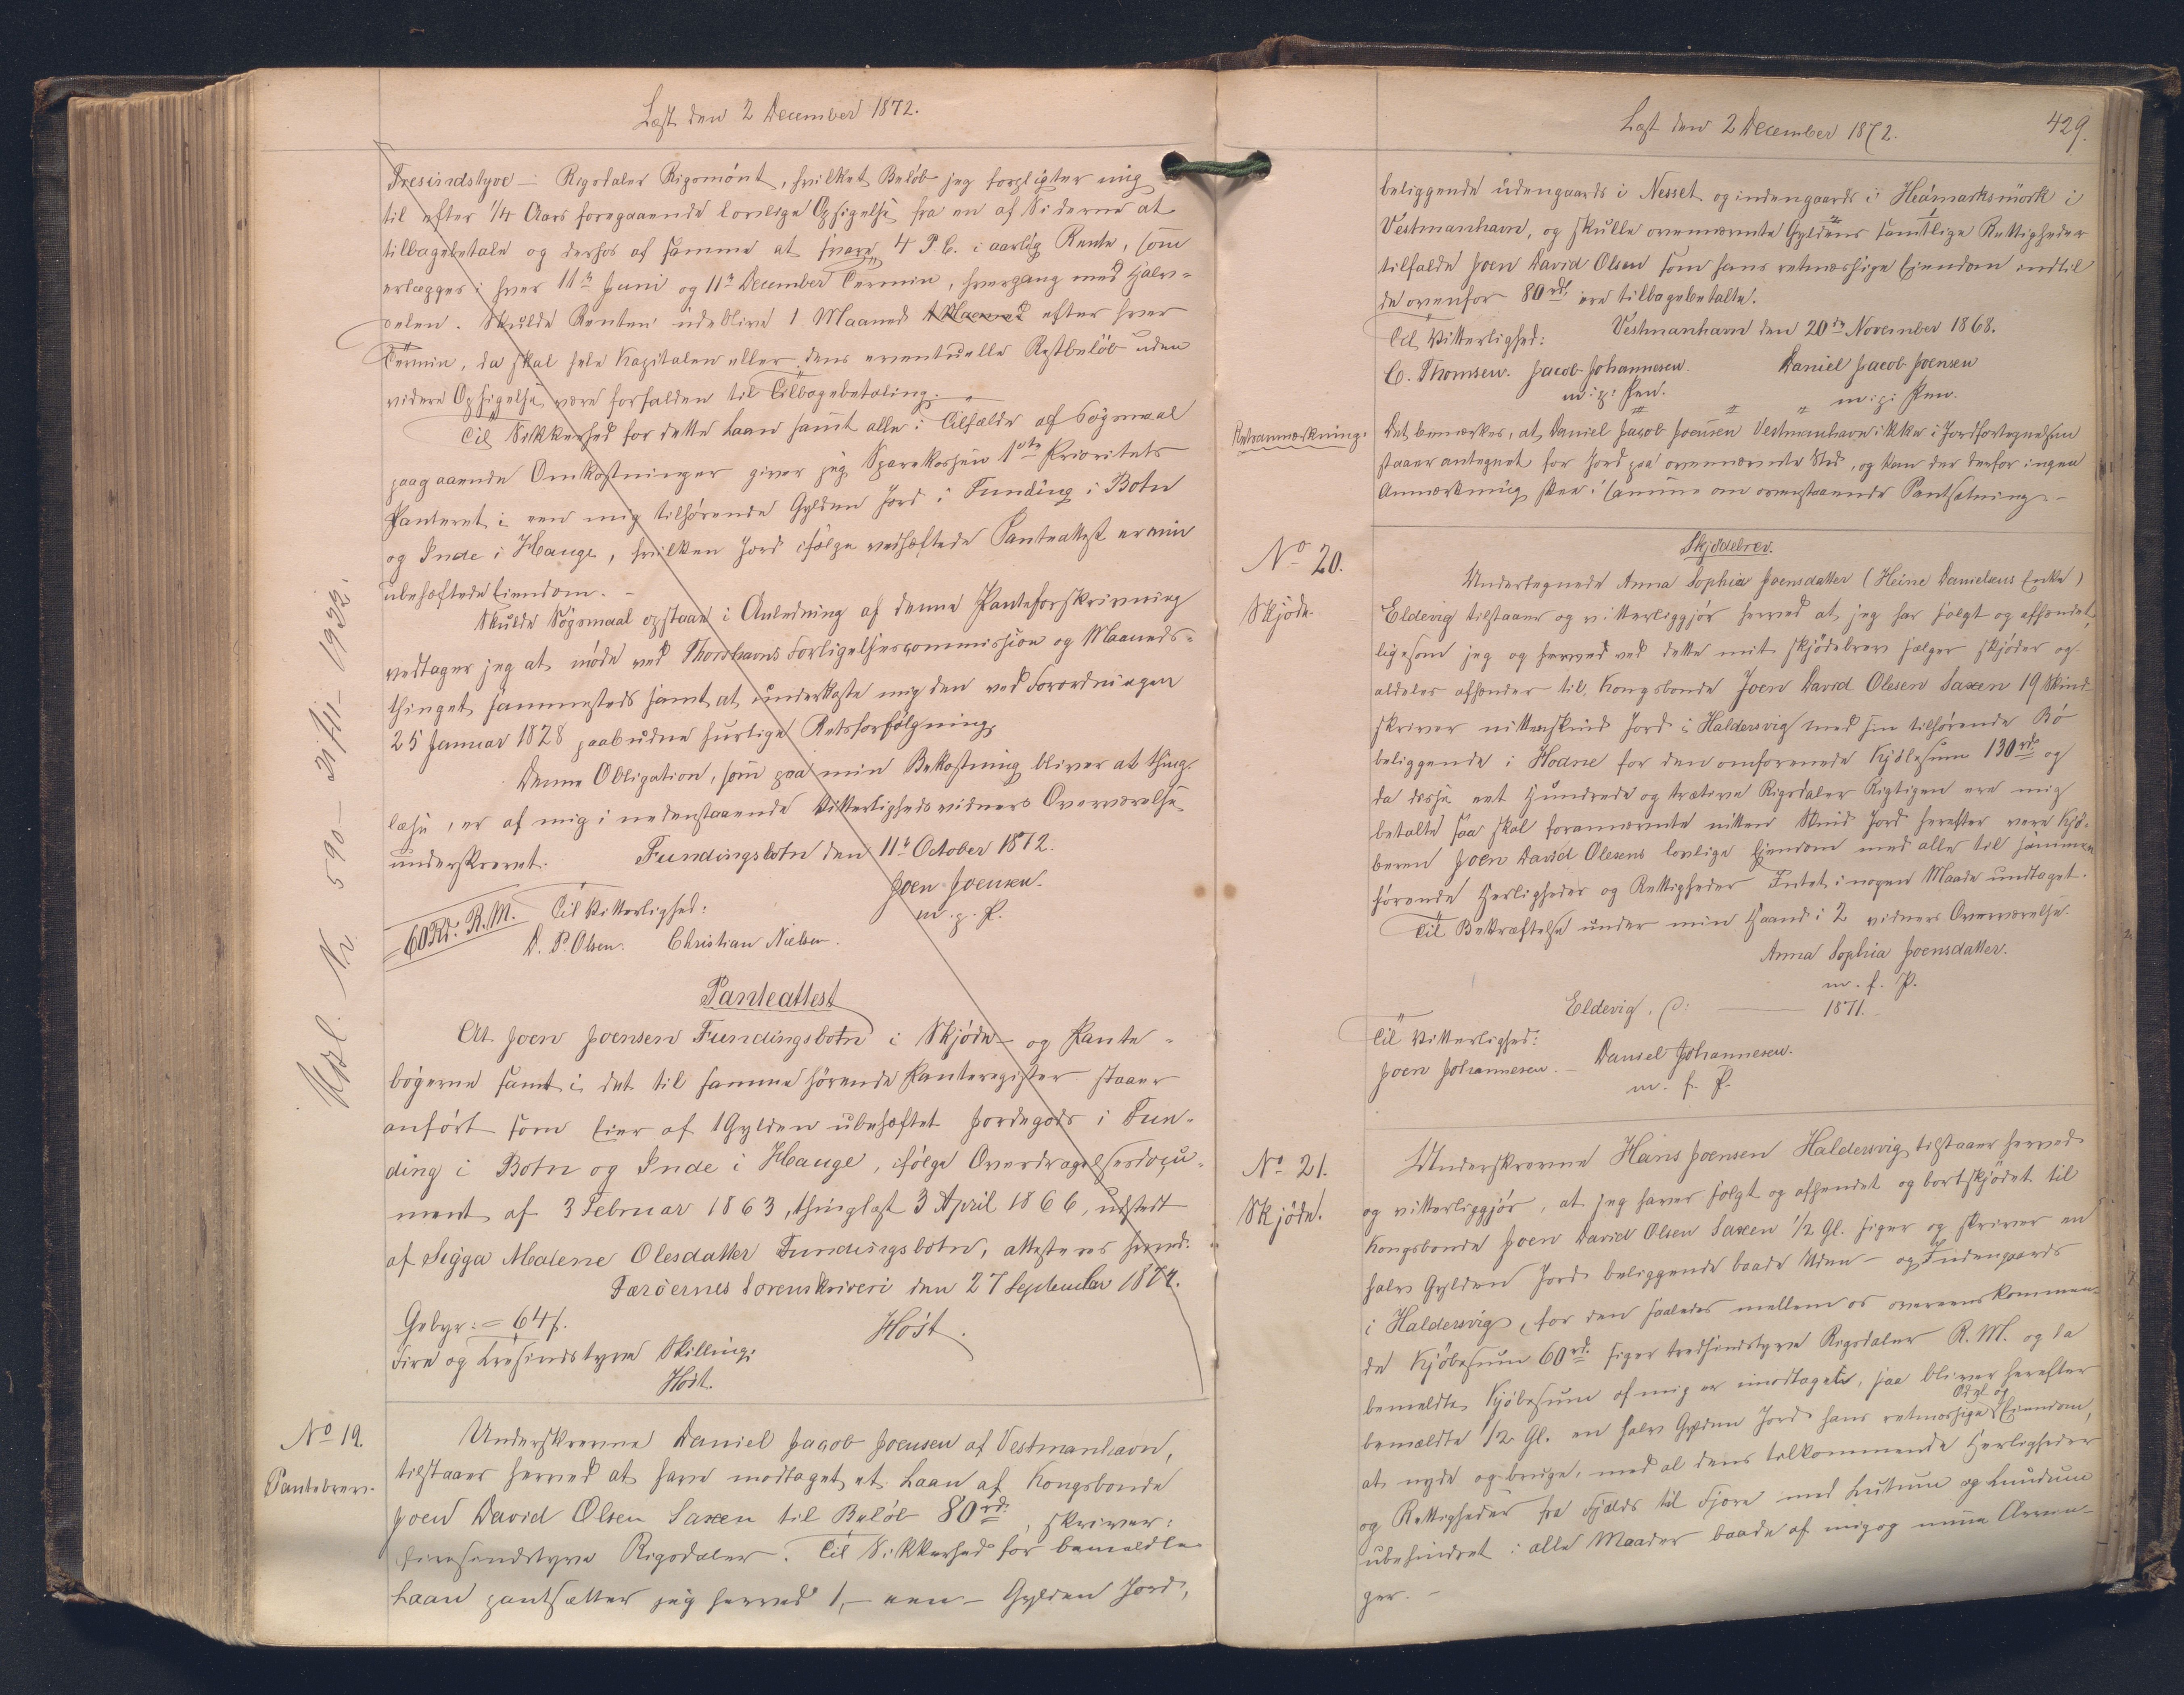 Læst den 2 December 1872.
Tresindstyve – Rigsdaler Rigsmönt, hvilket Belöb jeg forpligter mig
til efter 1/4 Aars foregaaende lovlige Opsigelse fra en af Siderne at
tilbagebetale og derhos af samme at svare 4 P.C. i aarlig Rente, som
erlægges i hver 11te Juni og 11te December Termin, hvergang med Halv-
delen. Skulde Renten udeblive 1 Maaned 1 Maaned efter hver
Termin, da skal hele Kapitalen eller dens eventuelle Restbelöb uden
videre Opsigelse være forfalden til Tilbagebetaling.
Til Sikkerhed for dette Laan samt alle i Tilfælde af Sögsmaal
paagaaende Omkostninger giver jeg Sparekassen 1ste Prioritets
Panteret i een mig tilhörende Gylden Jord i Funding i Botn
og Inde i Hauge, hvilken Jord ifölge vedhæftede Panteattest er min
ubehæftede Eiendom. –
Skulde Sögsmaal opstaae i Anledning af denne Panteforskrivning
vedtager jeg at möde ved Thorshavns Forligelsescommission og Maaneds-
thinget sammesteds samt at underkaste mig den ved Forordningen
25 Januar 1828 paabudne hurtige Retsforfölgning.
Denne Obligation, som paa min Bekostning bliver at thing-
læse, er af mig i nedenstaaende Vitterlighedsvidners Overværelse
underskrevet. Fundingsbotn den 11te October 1872.
Joen Joensen.
m. p. P.
60 Rd. R.M. Til Vitterlighed:
D. P. Olsen. Christian Nielsen.
Panteattest
At Joen Joensen Fundingsbotn i Skjöde- og Pante-
bögerne samt i det til samme hörende Panteregister staaer
anfört som Eier af 1 Gylden ubehæftet Jordegods i Fun-
ding i Botn og Inde i Hauge, ifölge Overdragelsesdocu-
ment af 3 Februar 1863, thinglæst 3 April 1866, udstedt
af Sigga Malene Olesdatter Fundingsbotn, attesteres herved.
Færöernes Sorenskriveri den 27 September 1872.
Gebyr: = 64 s. Höst.
Fire og tresindstyve Skilling.
Höst.
Udsl. Nr. 590 – 1922.
No 19.
Pantebrev.
Underskrevne Daniel Jacob Joensen af Vestmanhavn,
tilstaaer herved at have modtaget et Laan af Kongsbonde
Joen David Olsen Saxen til Belöb 80 rd., skriver:
firesindstyve Rigsdaler. Til Sikkerhed for bemeldte
Laan pantsætter jeg herved 1, – een – Gylden Jord,
Læst den 2 December 1872. 429.
beliggende udengaards i Nesset og indengaards i Heimarksmörk i
Vestmanhavn, og skulle ovennævnte Gyldens samtlige Rettigheder
tilfalde Joen David Olsen som hans retmæssige Eiendom indtil
de ovenfor 80 rd. ere tilbagebetalte.
Til Vitterlighed: Vestmanhavn den 20de November 1868.
C. Thomsen. Jacob Johannesen. Daniel Jacob Joensen
m: p: Pen. m: p: Pen.
Retsanmærkning:
Det bemærkes, at Daniel Jacob Joensen Vestmanhavn ikke i Jordfortegnelsen
staaer antegnet for Jord paa ovennævnte Sted, og kan der derfor ingen
Anmærkning skee i samme om ovenstaaende Pantsætning. –
No 20.
Skjöde.
Skjödebrev.
Undertegnede Anna Sophia Joensdatter (Heine Danielsens Enke)
Eldevig tilstaaer og vitterliggjör herved at jeg har solgt og afhændet,
ligesom jeg og herved ved dette mit Skjödebrev sælger skjöder og
aldeles afhænder til Kongsbonde Joen David Olesen Saxen 19 Skind
skriver nitten Skind Jord i Haldersvig med sin tilhörende Bö
beliggende i Hodne for den omforenede Kjöbesum 130 rd. og
da disse eet Hundrede og trætive Rigsdaler Rigtigen ere mig
betalte saa skal forannævnte nitten Skind Jord herefter være Kjö-
beren Joen David Olesens lovlige Eiendom med alle til samme
hörende Herligheder og Rettigheder Intet i nogen Maade undtaget.
Til Bekræftelse under min Haand i 2 Vidners Overværelse.
Anna Sophia Joensdatter.
m. f. P.
Eldevig, d: —— 1871.
Til Vitterlighed:
Joen Johannesen. – Daniel Johannesen.
m. f. P.
No 21.
Skjöde.
Underskrevne Hans Joensen Haldersvig tilstaaer herved
og vitterliggjör, at jeg haver solgt og afhendet og bortskjödet til
Kongsbonde Joen David Olsen Saxen 1/2 Gl. siger og skriver en
halv Gylden Jord beliggende baade Uden- og Indengaards
i Haldersvig, for den saaledes mellem os overenskommen-
de Kjöbesum 60 rd. siger tredsindstyve Rigsdaler R.M. og da
bemeldte Kjöbesum af mig er modtaget, saa bliver herefter
bemældte 1/2 Gl. en halv Gylden Jord hans retmæssige Odel og Eiendom,
at nyde og bruge, med al dens tilkommende Herligheder
og Rettigheder fra Fjelds til Fjære med Lutum og Lundum
ubehindret i alle Maader baade af mig og mine Arvin-
ger. –